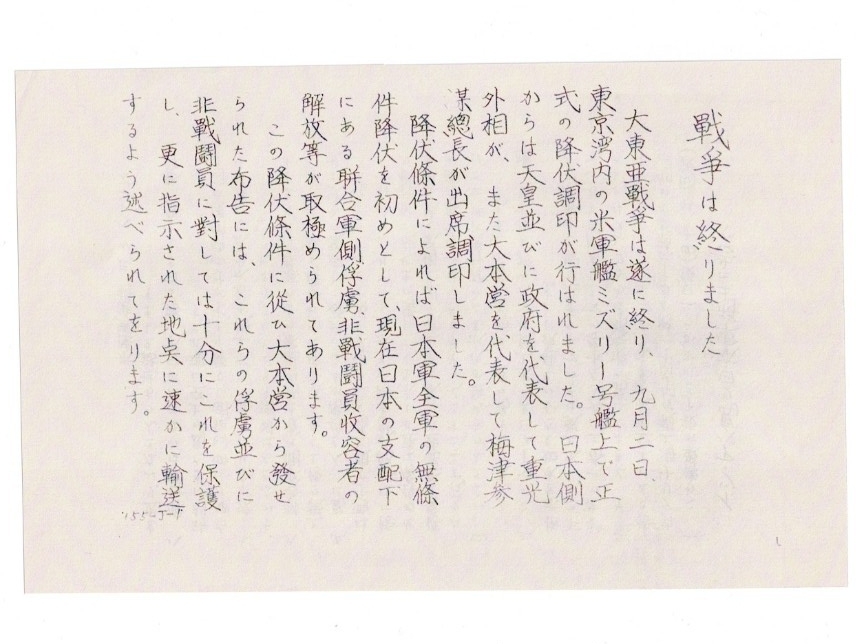 戰爭は終りました
大東亜戰爭は遂に終り、九月二日、
東京湾内の米軍艦ミズリー号艦上で正
式の降伏調印が行はれました。日本側
からは天皇並びに政府を代表して重光
外相が、また大本営を代表して梅津参
謀總長が出席、調印しました。
降伏條件によれば日本軍全軍の無條
件降伏を初めとして、現在日本の支配下
にある聯合軍側俘虜、非戰闘員收容者の
解放等が取極められてあります。
この降伏條件に従ひ大本営から發せ
られた布告には、これらの俘虜並びに
非戰闘員に對しては十分にこれを保護
し、更に指示された地点に速かに輸送
するよう述べられてをります。
155-J-1